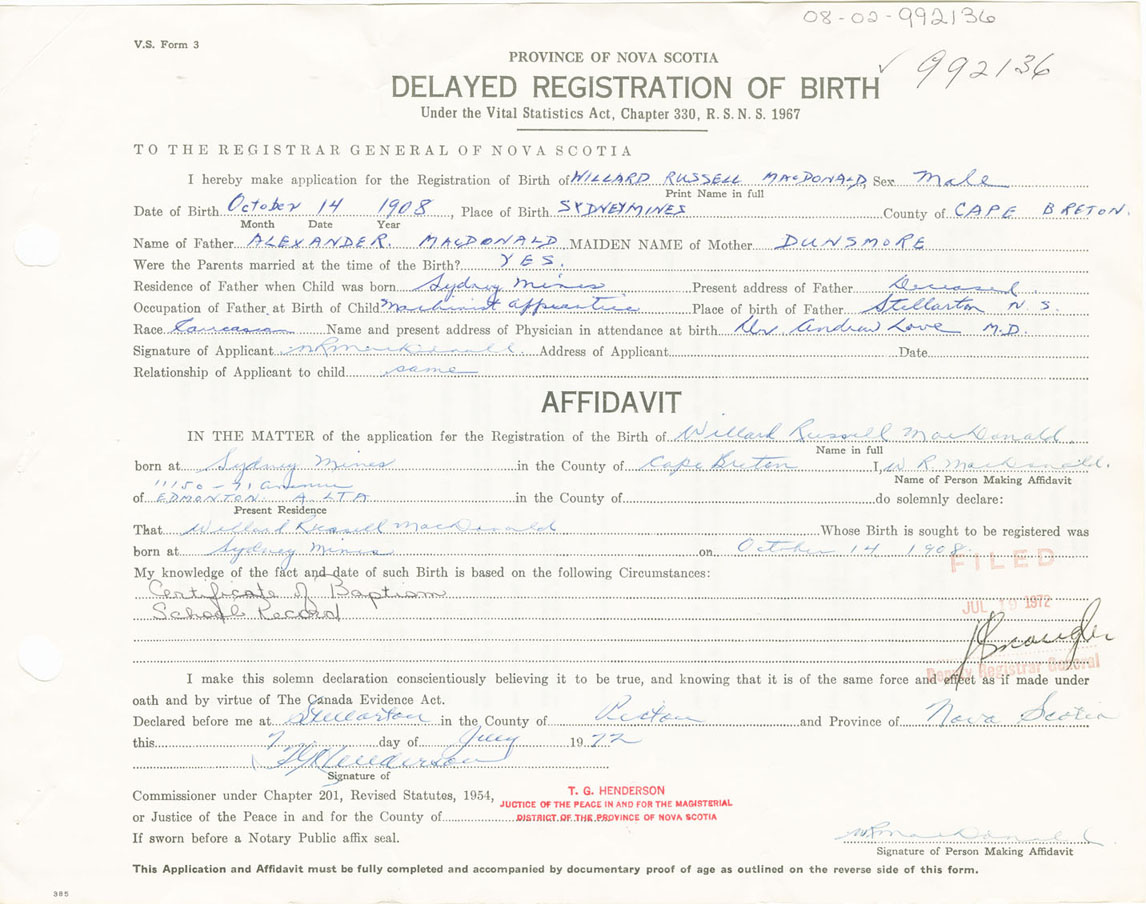 08-02-992136
V.S. Form 3
PROVINCE OF NOVA SCOTIA
✓ 992136
DELAYED REGISTRATION OF BIRTH
Under the Vital Statistics Act, Chapter 330, R. S. N. S. 1967
TO THE REGISTRAR GENERAL OF NOVA SCOTIA
I hereby make application for the Registration of Birth of WILLARD RUSSELL MACDONALD, Sex Male
Print Name in full
Date of Birth October 14 1908, Place of Birth SYDNEY MINES County of CAPE BRETON.
Month Date Year
Name of Father ALEXANDER. MACDONALD MAIDEN NAME of Mother DUNSMORE
Were the Parents married at the time of the Birth? YES.
Residence of Father when Child was born Sydney Mines Present address of Father Deceased.
Occupation of Father at Birth of Child Machinist apprentice Place of birth of Father Stellarton N.S.
Race Caucasian Name and present address of Physician in attendance at birth Dr Andrew Love M.D.
Signature of Applicant Address of Applicant Date
Relationship of Applicant to child same
AFFIDAVIT
IN THE MATTER of the application for the Registration of the Birth of Willard Russell MacDonald
Name in full
born at Sydney Mines in the County of Cape Breton I, W R MacDonald.
Name of Person Making Affidavit
11150-71 avenue
of EDMONTON ALTA in the County of do solemnly declare:
Present Residence
That Willard Russell MacDonald Whose Birth is sought to be registered was
born at Sydney Mines on October 14 1908.
FILED
My knowledge of the fact and date of such Birth is based on the following Circumstances:
Certificate of Baptism
School Record
JUL 19 1972
Deputy Registrar General
I make this solemn declaration conscientiously believing it to be true, and knowing that it is of the same force and effect as if made under
oath and by virtue of The Canada Evidence Act.
Declared before me at Stellarton in the County of Pictou and Province of Nova Scotia
this 7 day of July 1972
T G Henderson
Signature of
Commissioner under Chapter 201, Revised Statutes, 1954,
or Justice of the Peace in and for the County of
T. G. HENDERSON
JUSTICE OF THE PEACE IN AND FOR THE MAGISTERIAL
DISTRICT OF THE PROVINCE OF NOVA SCOTIA
If sworn before a Notary Public affix seal.
WR MacDonald
Signature of Person Making Affidavit
This Application and Affidavit must be fully completed and accompanied by documentary proof of age as outlined on the reverse side of this form.
385